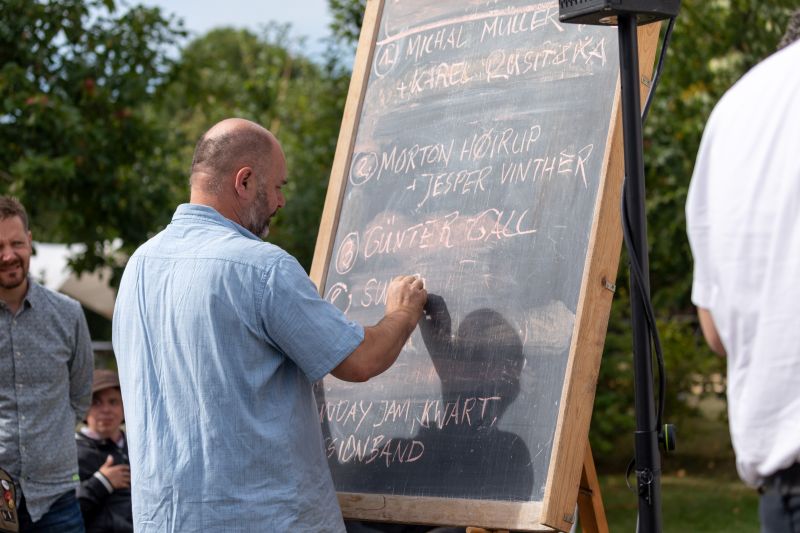 ① MICHAL MÜLLER
+ KAREL RŮSIČKA
② MORTON HØIRUP
+ JESPER VINTHER
③ GÜNTER GALL
SU
NDAY JAM, KWART,
SIONBAND